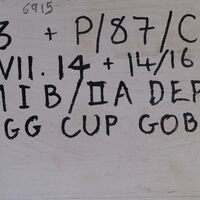 6915
3 + P/87/C
VII. 14 + 14/16
MIB/IIA DEP
GG CUP GOB